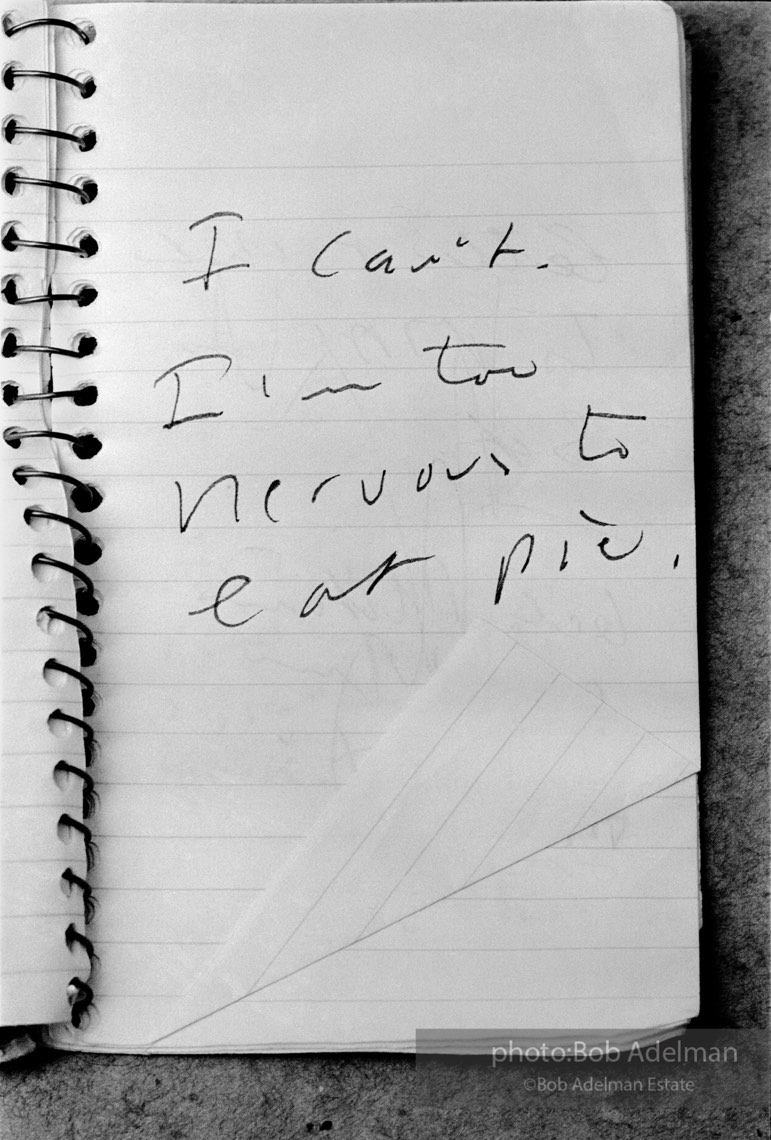 I can't.
I'm too
nervous to
eat pie.
photo:Bob Adelman
©Bob Adelman Estate